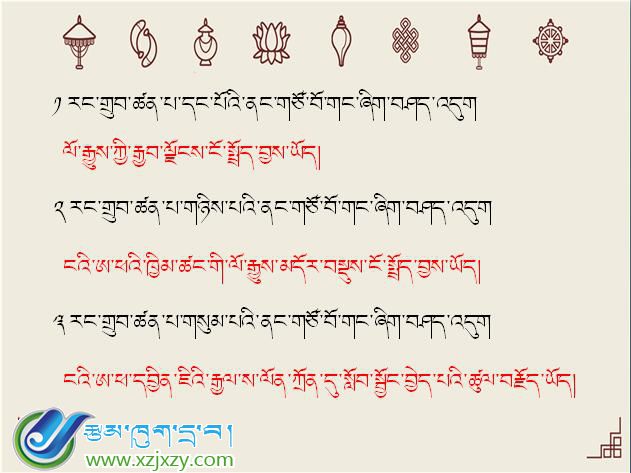 ༡ རང་གྲུབ་ཚན་པ་དང་པོའི་ནང་གཙོ་བོ་གང་ཞིག་བཤད་འདུག
ལོ་རྒྱུས་ཀྱི་རྒྱབ་ལྗོངས་ངོ་སྤྲོད་བྱས་ཡོད།
༢ རང་གྲུབ་ཚན་པ་གཉིས་པའི་ནང་གཙོ་བོ་གང་ཞིག་བཤད་འདུག
ངའི་ཨ་ཕའི་ཁྱིམ་ཚང་གི་ལོ་རྒྱུས་མདོར་བསྡུས་ངོ་སྤྲོད་བྱས་ཡོད།
༣ རང་གྲུབ་ཚན་པ་གསུམ་པའི་ནང་གཙོ་བོ་གང་ཞིག་བཤད་འདུག
ངའི་ཨ་ཕ་དབྱིན་ཇིའི་རྒྱལ་ས་ལོན་ཀྲོན་དུ་སློབ་སྦྱོང་བྱེད་པའི་ཚུལ་བརྗོད་ཡོད།
རྩམ་ཁུག་དྲ་བ།
www.xzjxzy.com